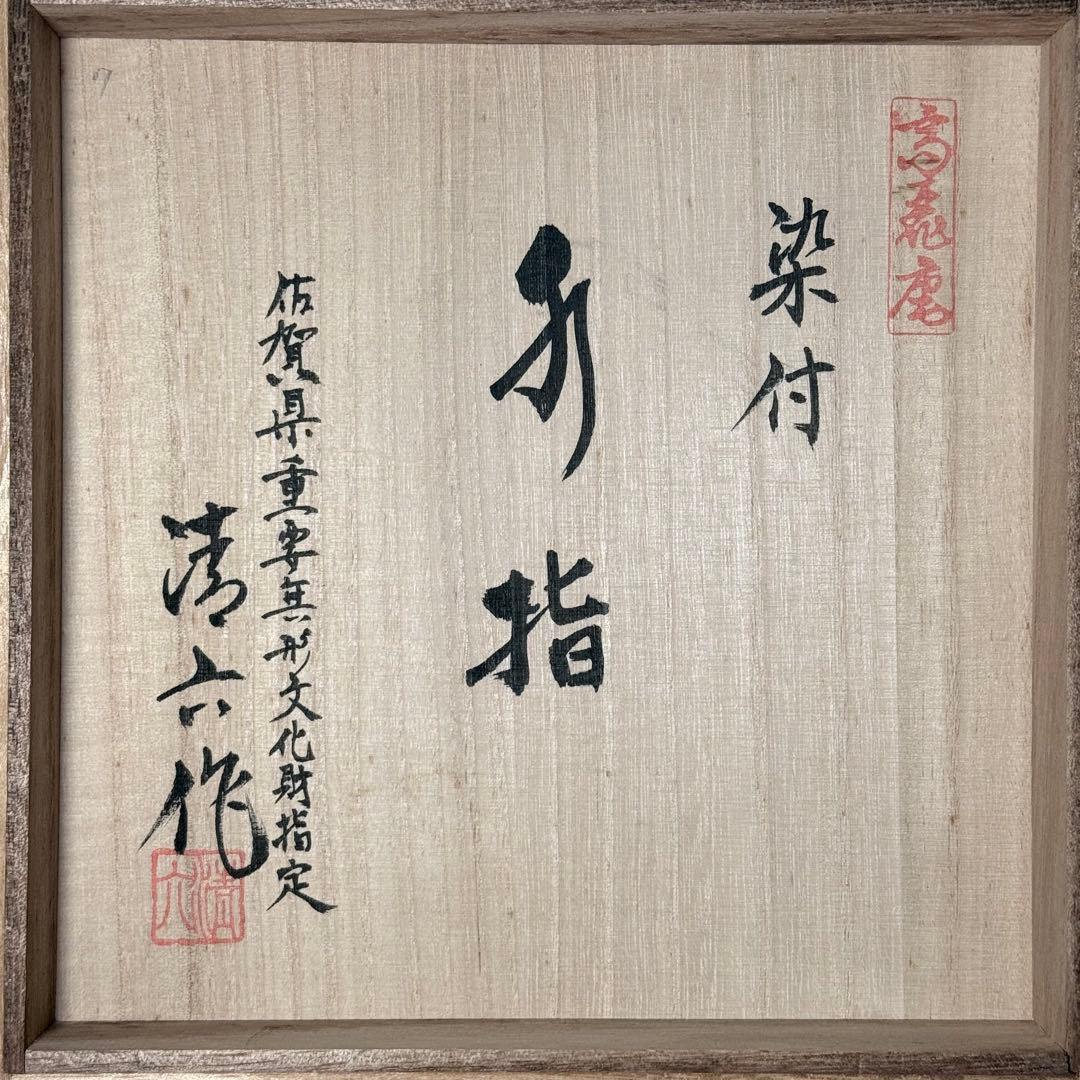 高麗庵
染付
水指
佐賀県重要無形文化財指定
清六作
清六